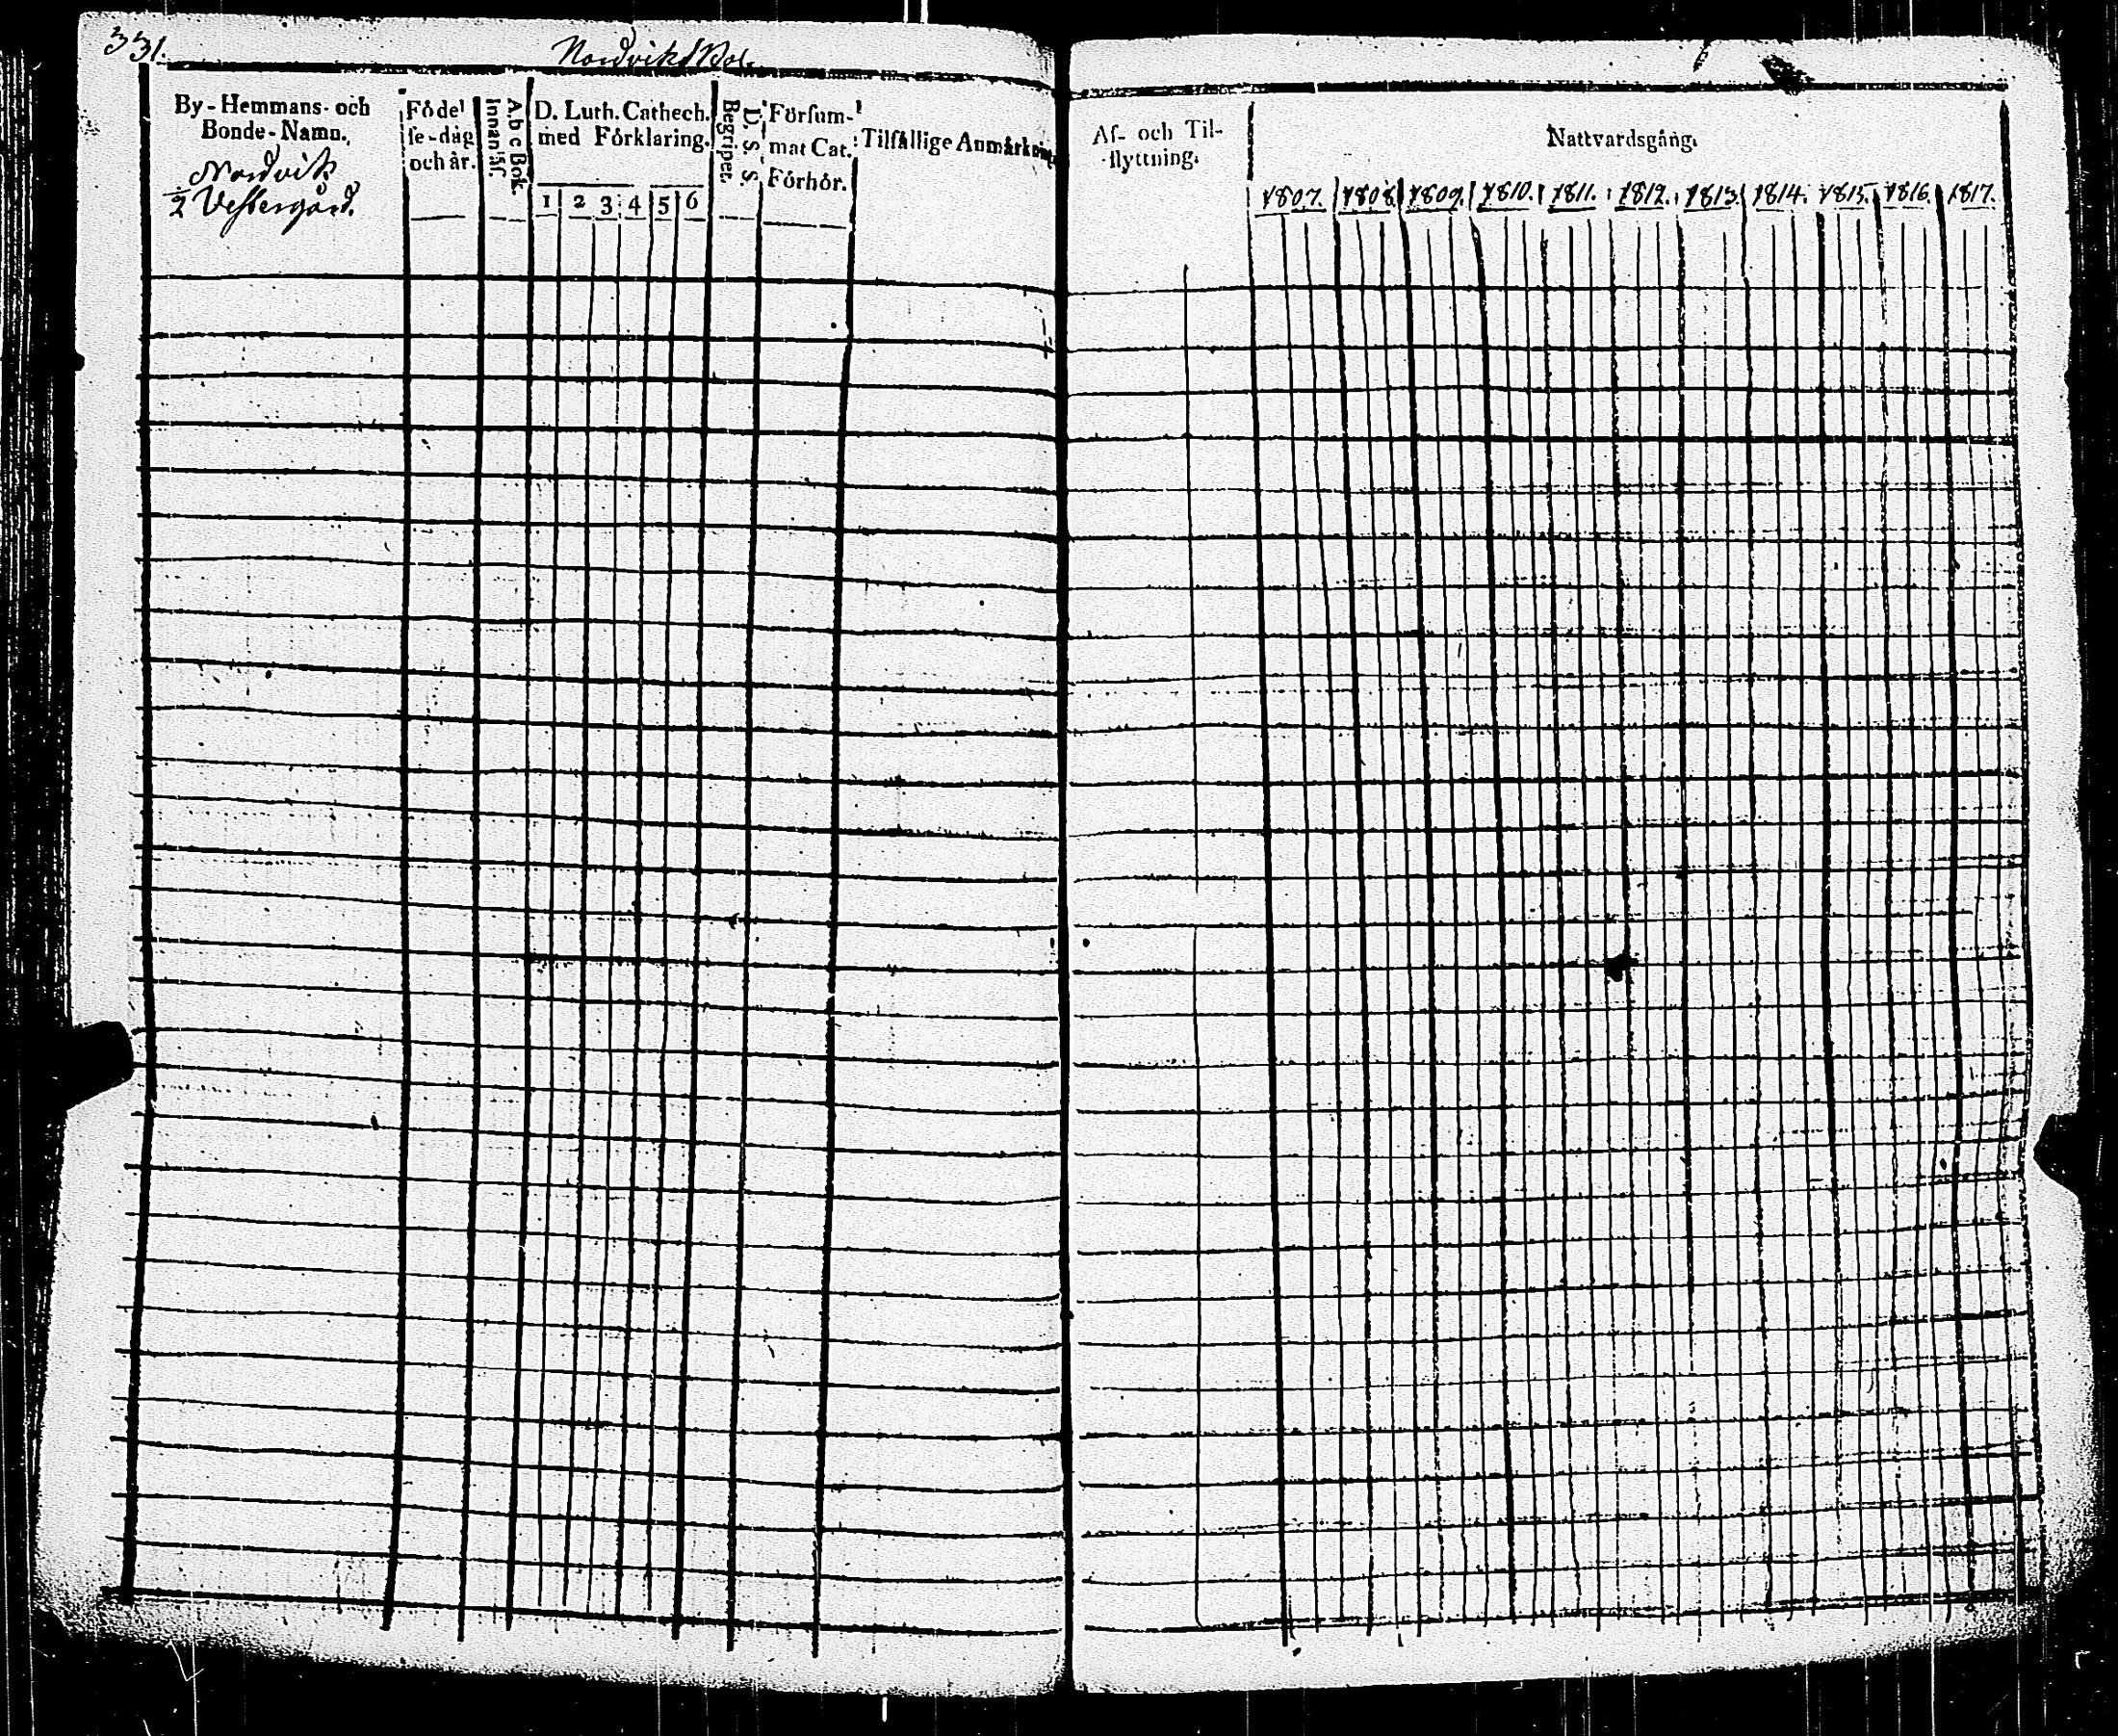 331.
Nordviks Bol.
By-Hemmans- och
Bonde-Namn.
Nordvik
2 Vestergård.
Födel
se-dag
och år.
A.b c Bok.
Innanläs.
D. Luth. Cathech.
med Förklaring.
1 2 3 4 5 6
D. S. S.
Begriper.
Försum-
mat Cat.
Förhör.
Tilfällige Anmärkning
Af- och Til-
flyttning.
Nattvardsgång.
1807. 1808. 1809. 1810. 1811. 1812. 1813. 1814. 1815. 1816. 1817.